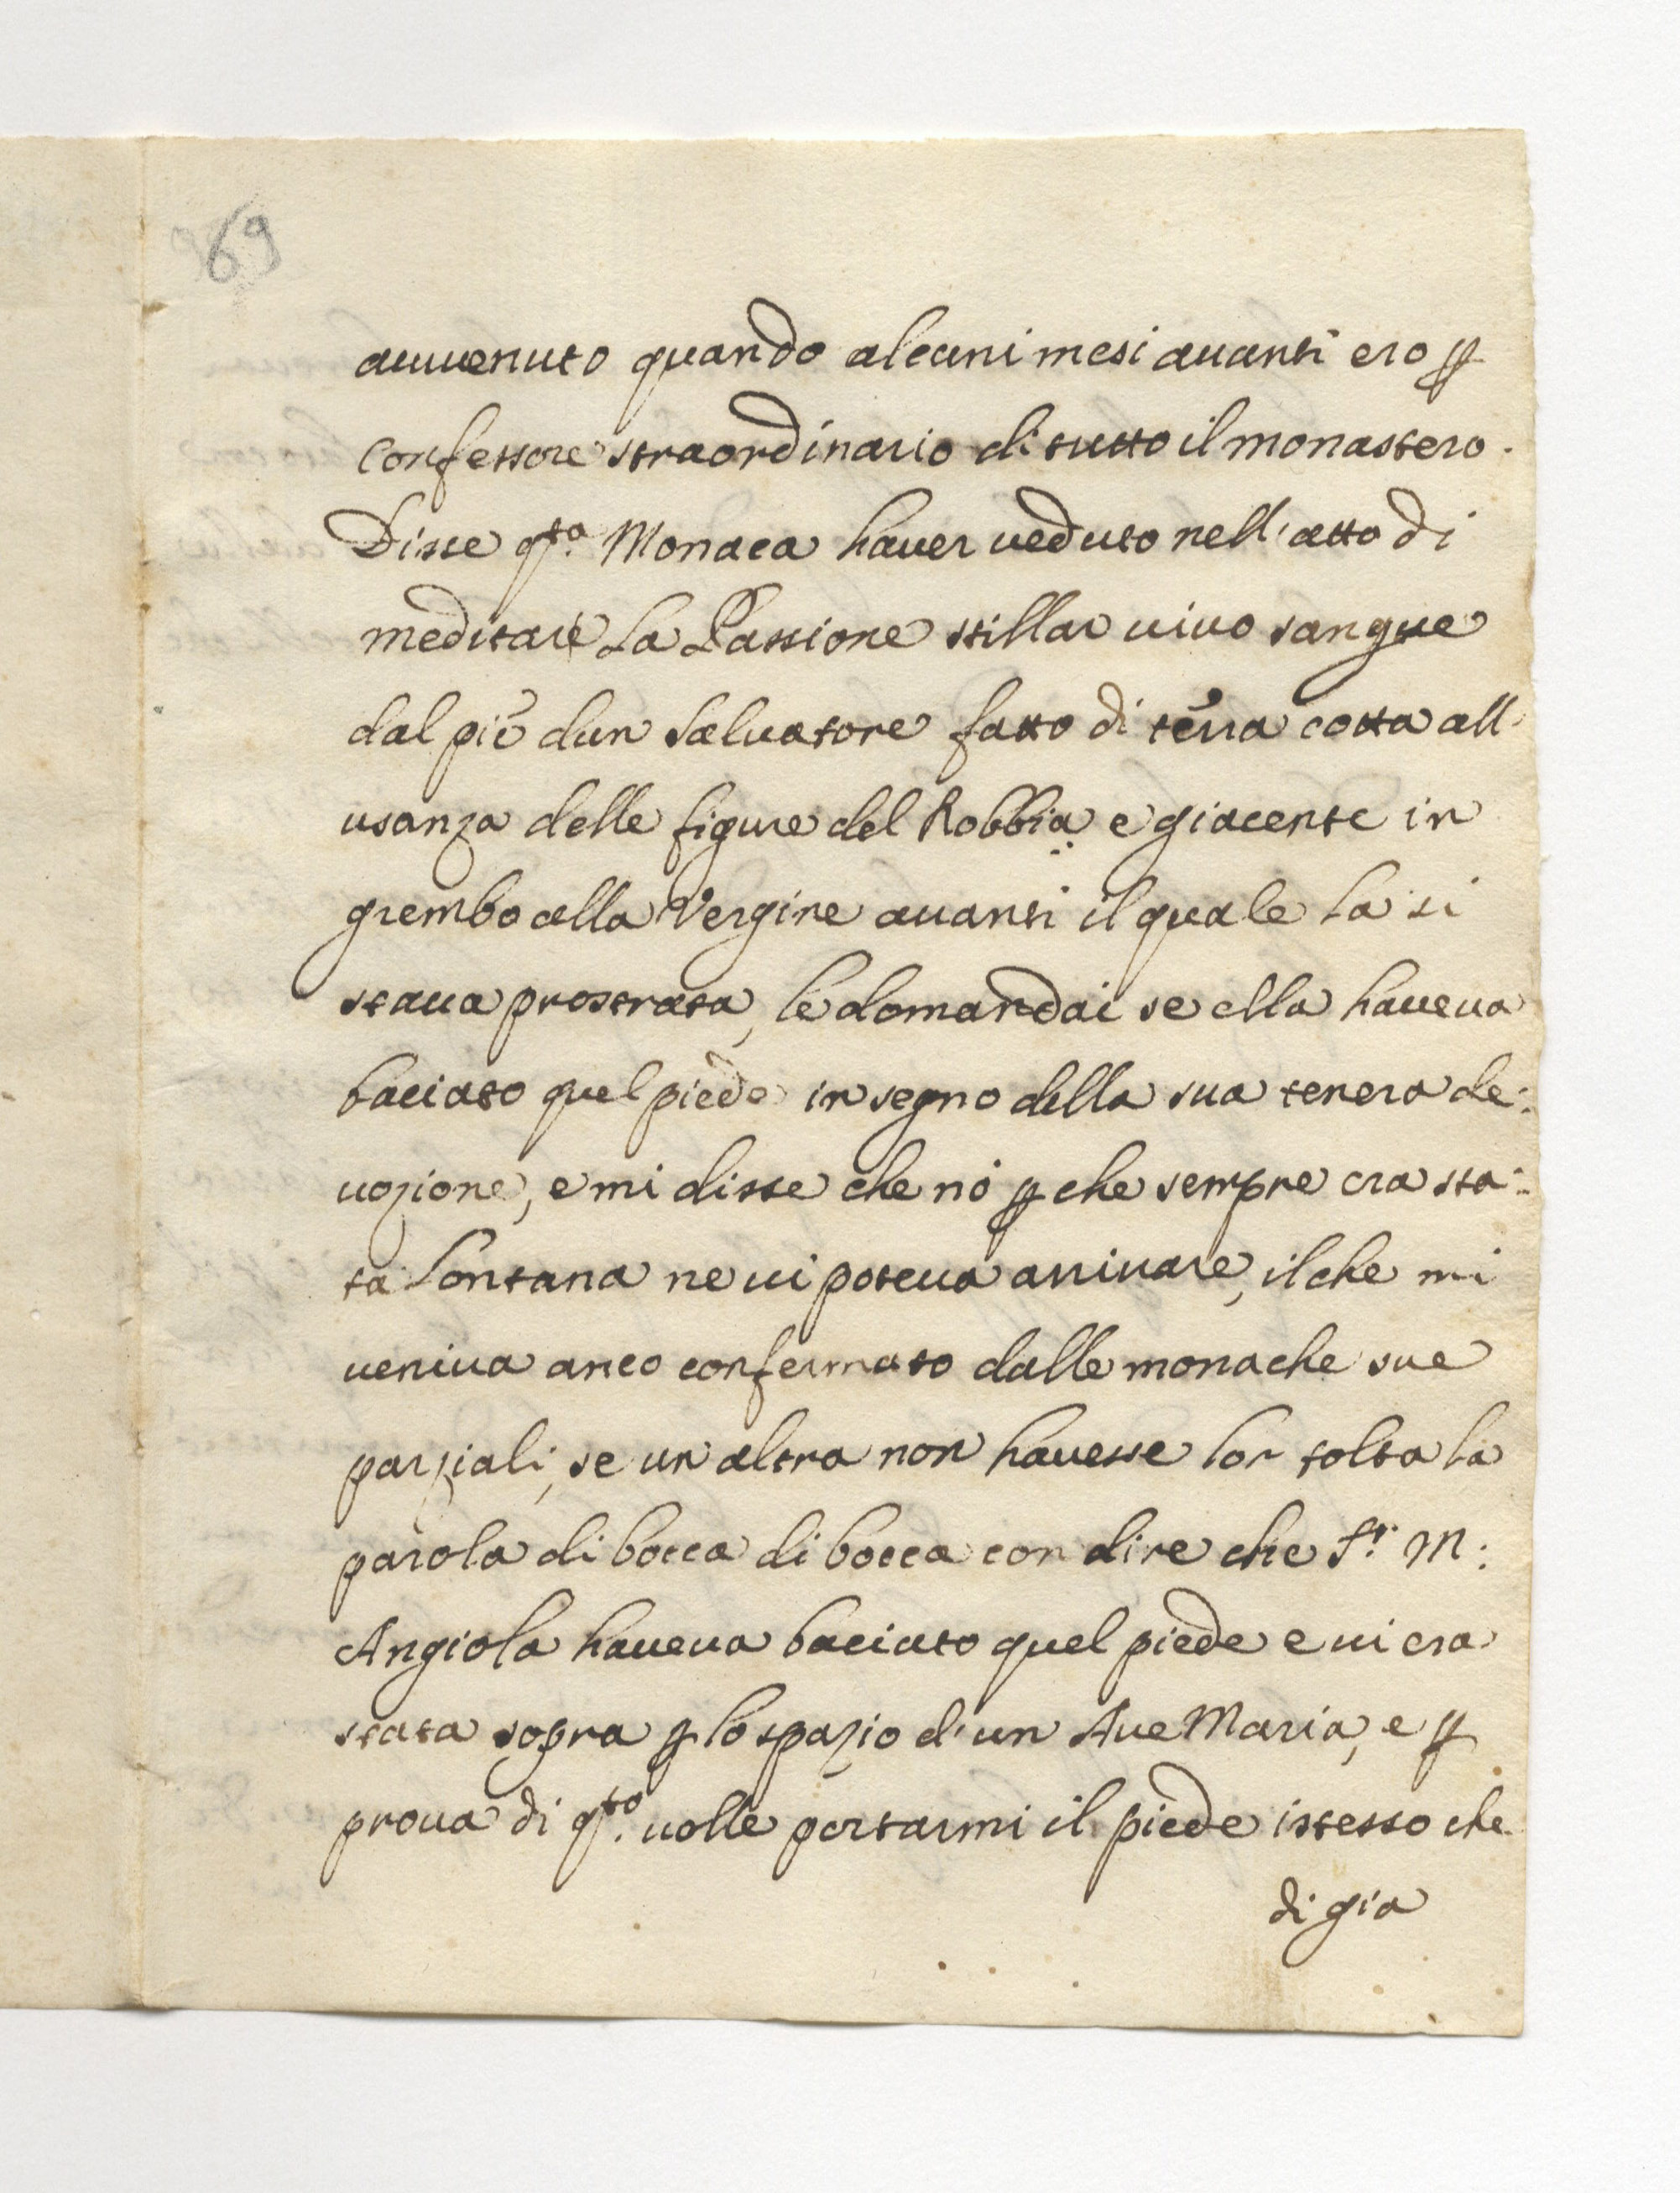 69
auuenuto quando alcuni mesi auanti ero ꝑ
Confessore straordinario di tutto il monastero.
Disse q.ta Monaca hauer ueduto nell'atto di
meditare La Passione stillar uiuo sangue
dal piè dun Saluatore fatto di terra cotta all'
usanza delle figure del Robbia e giacente in
grembo alla Vergine auanti il quale la si
staua prostrata, le domandai se ella haueua
baciato quel piede in segno della sua tenera de:
uozione, e mi disse che nò ꝑ che sempre era sta:
ta lontana ne ui poteua arriuare, il che mi
ueniua anco confermato dalle monache sue
parziali, se un altra non hauesse lor tolta la
parola di bocca di bocca con dire che S.r M:
Angiola haueua baciato quel piede e ui era
stata sopra ꝑ lo spazio d'un Aue Maria, e ꝑ
proua di q.to uolle portarmi il piede istesso che
di gia